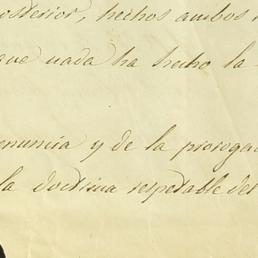 osterior, hechos ambos
que nada ha hecho la
enuncia y de la proroga
la doctrina respetable del